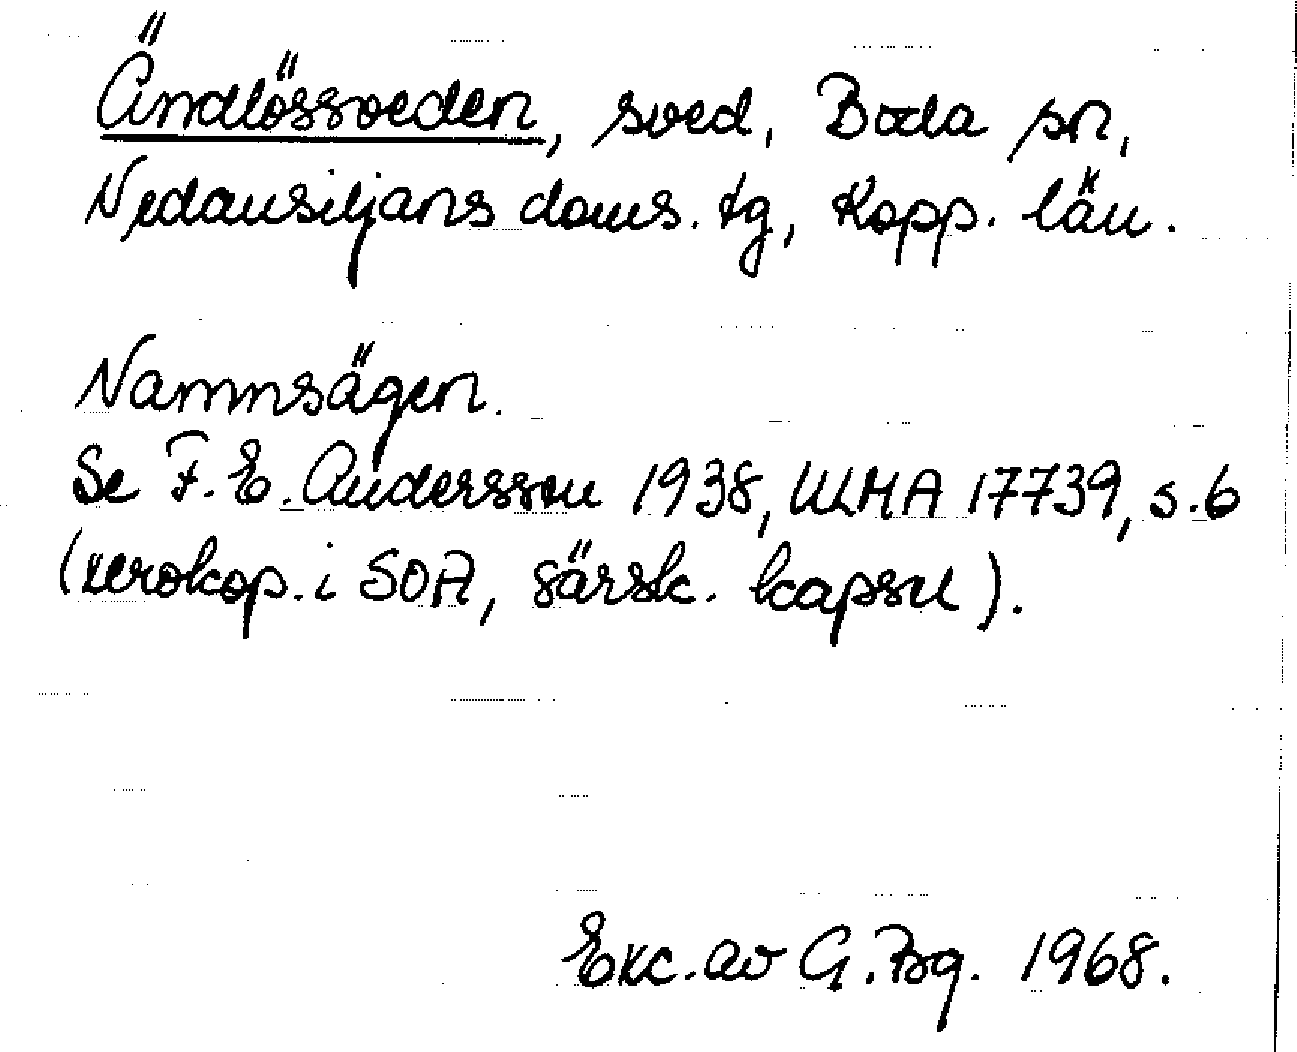 Ändlössveden, sved, Boda sn,
Nedansiljans doms. tg, Kopp. län.
Namnsägen.
Se F. E. Andersson 1938, ULMA 17739, s. 6
(xerokop. i SOA, särsk. kapsel).
Exc. av G. Bg. 1968.